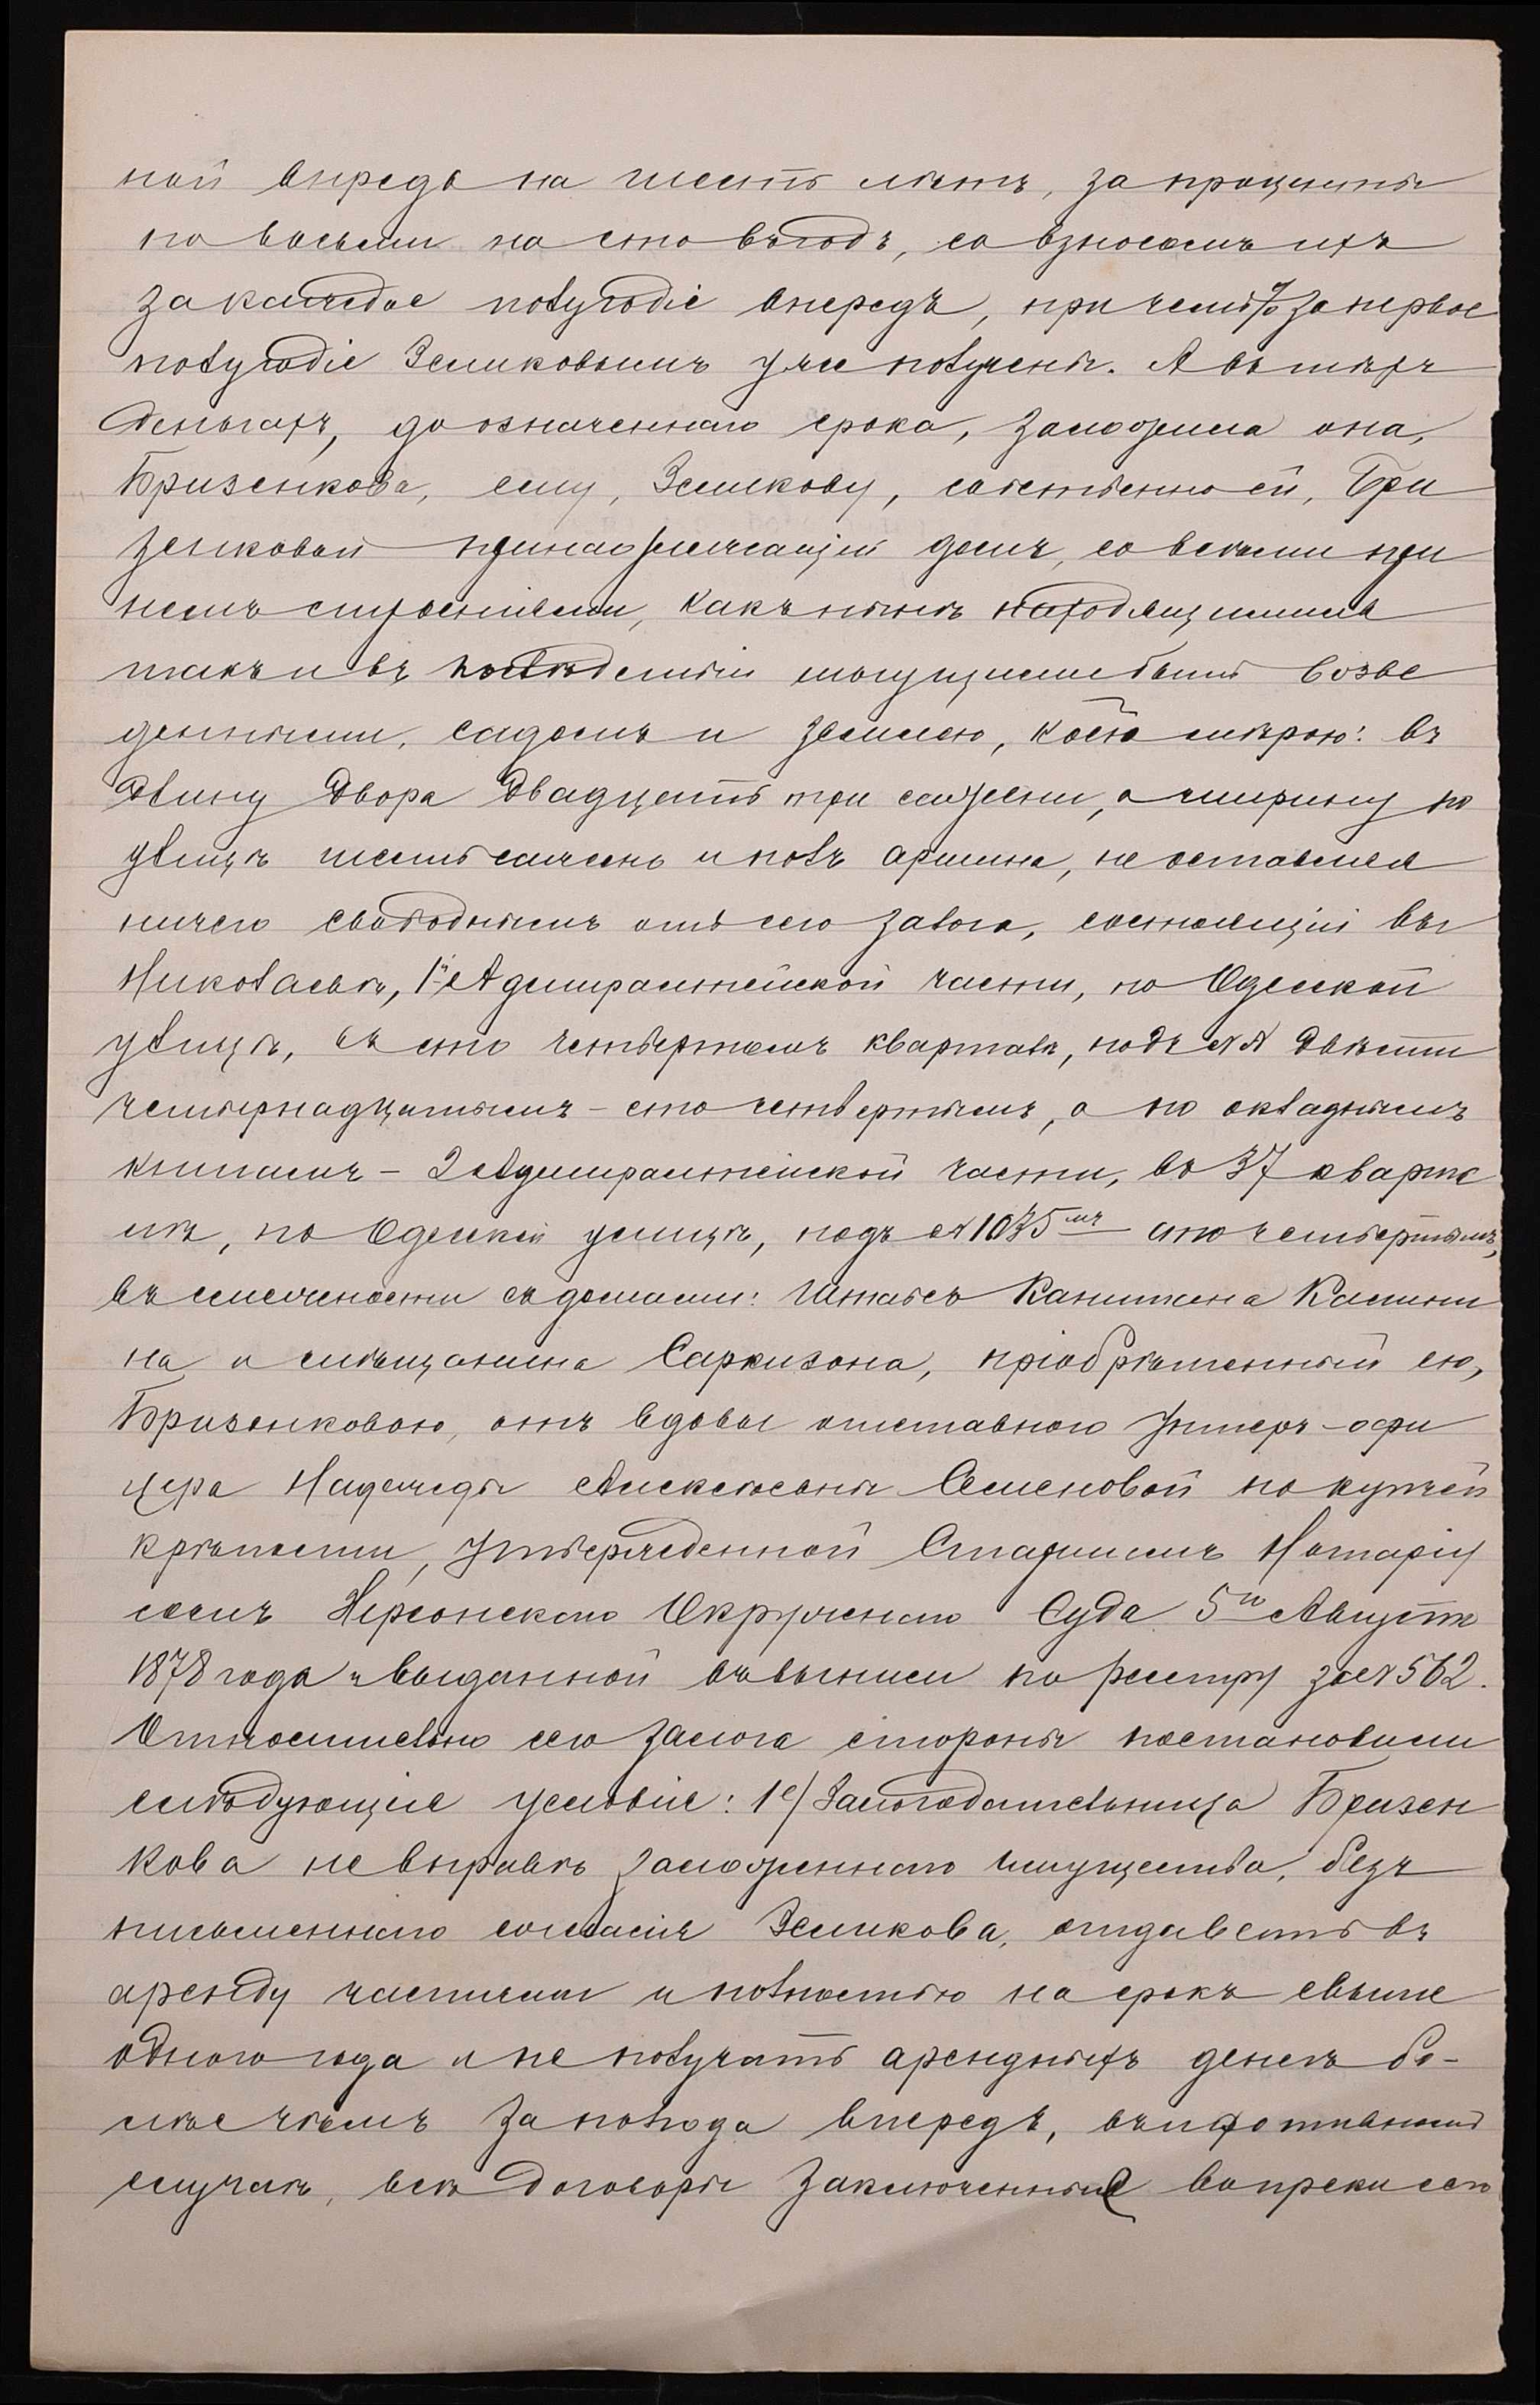 ной впредь на шесть лѣтъ, за проценты
по восьми на сто въ годъ, со взносомъ ихъ
за каждое полугодіе впередъ, при чемъ % за первое
полугодіе Земиковымъ уже получены. А въ тѣхъ
деньгахъ, до означеннаго срока, заложила она,
Бризенкова, ему, Земикову, собственной, Бри
зенковой принадлежащій домъ, со всѣми при
немъ строеніями, какъ нынѣ находящимися
такъ и въ послѣдствіи могущими быть возве
денными, садомъ и землею, коей мѣрою: въ
длину двора двадцать три сажени, а ширину по
улицѣ шесть сажень и полъ аршина, не оставляя
ничего свободнымъ отъ сего залога, состоящій въ г
Николаевѣ, 1й Адмиралтейской части, по Одесской
улицѣ, въ сто четвертомъ кварталѣ, подъ №№ двѣсти
четырнадцатымъ - сто четвертымъ, а по окладнымъ
книгамъ - 2 Адмиралтейской части, въ 37 кварта
лѣ, по Одесской улицѣ, подъ № 1035мъ сто четвертымъ,
въ смежности съ домами: Штабсъ Капитана Калини
на и мѣщанина Саркизона, пріобрѣтенный ею,
Бризенковою, отъ вдовы отставного Унтеръ-офи
цера Надежды Алексѣевны Семеновой по купчей
крѣпости, утвержденной Старшимъ Нотаріу
сомъ Херсонскаго Окружнаго Суда 5го Августа
1878 года и выданной въ выписи по реестру за № 562.
Относительно сего залога стороны постановили
слѣдующія условія: 1е/ Залогодательница Бризен
кова не вправѣ заложеннаго имущества, безъ
письменнаго согласія Земикова, отдавать въ
аренду частями и полностію на срокъ свыше
одного года и не получать арендныхъ денегъ бо-
лѣе чѣмъ за полгода впередъ, въ противномъ
случаѣ, всѣ договоры заключенные вопреки сего